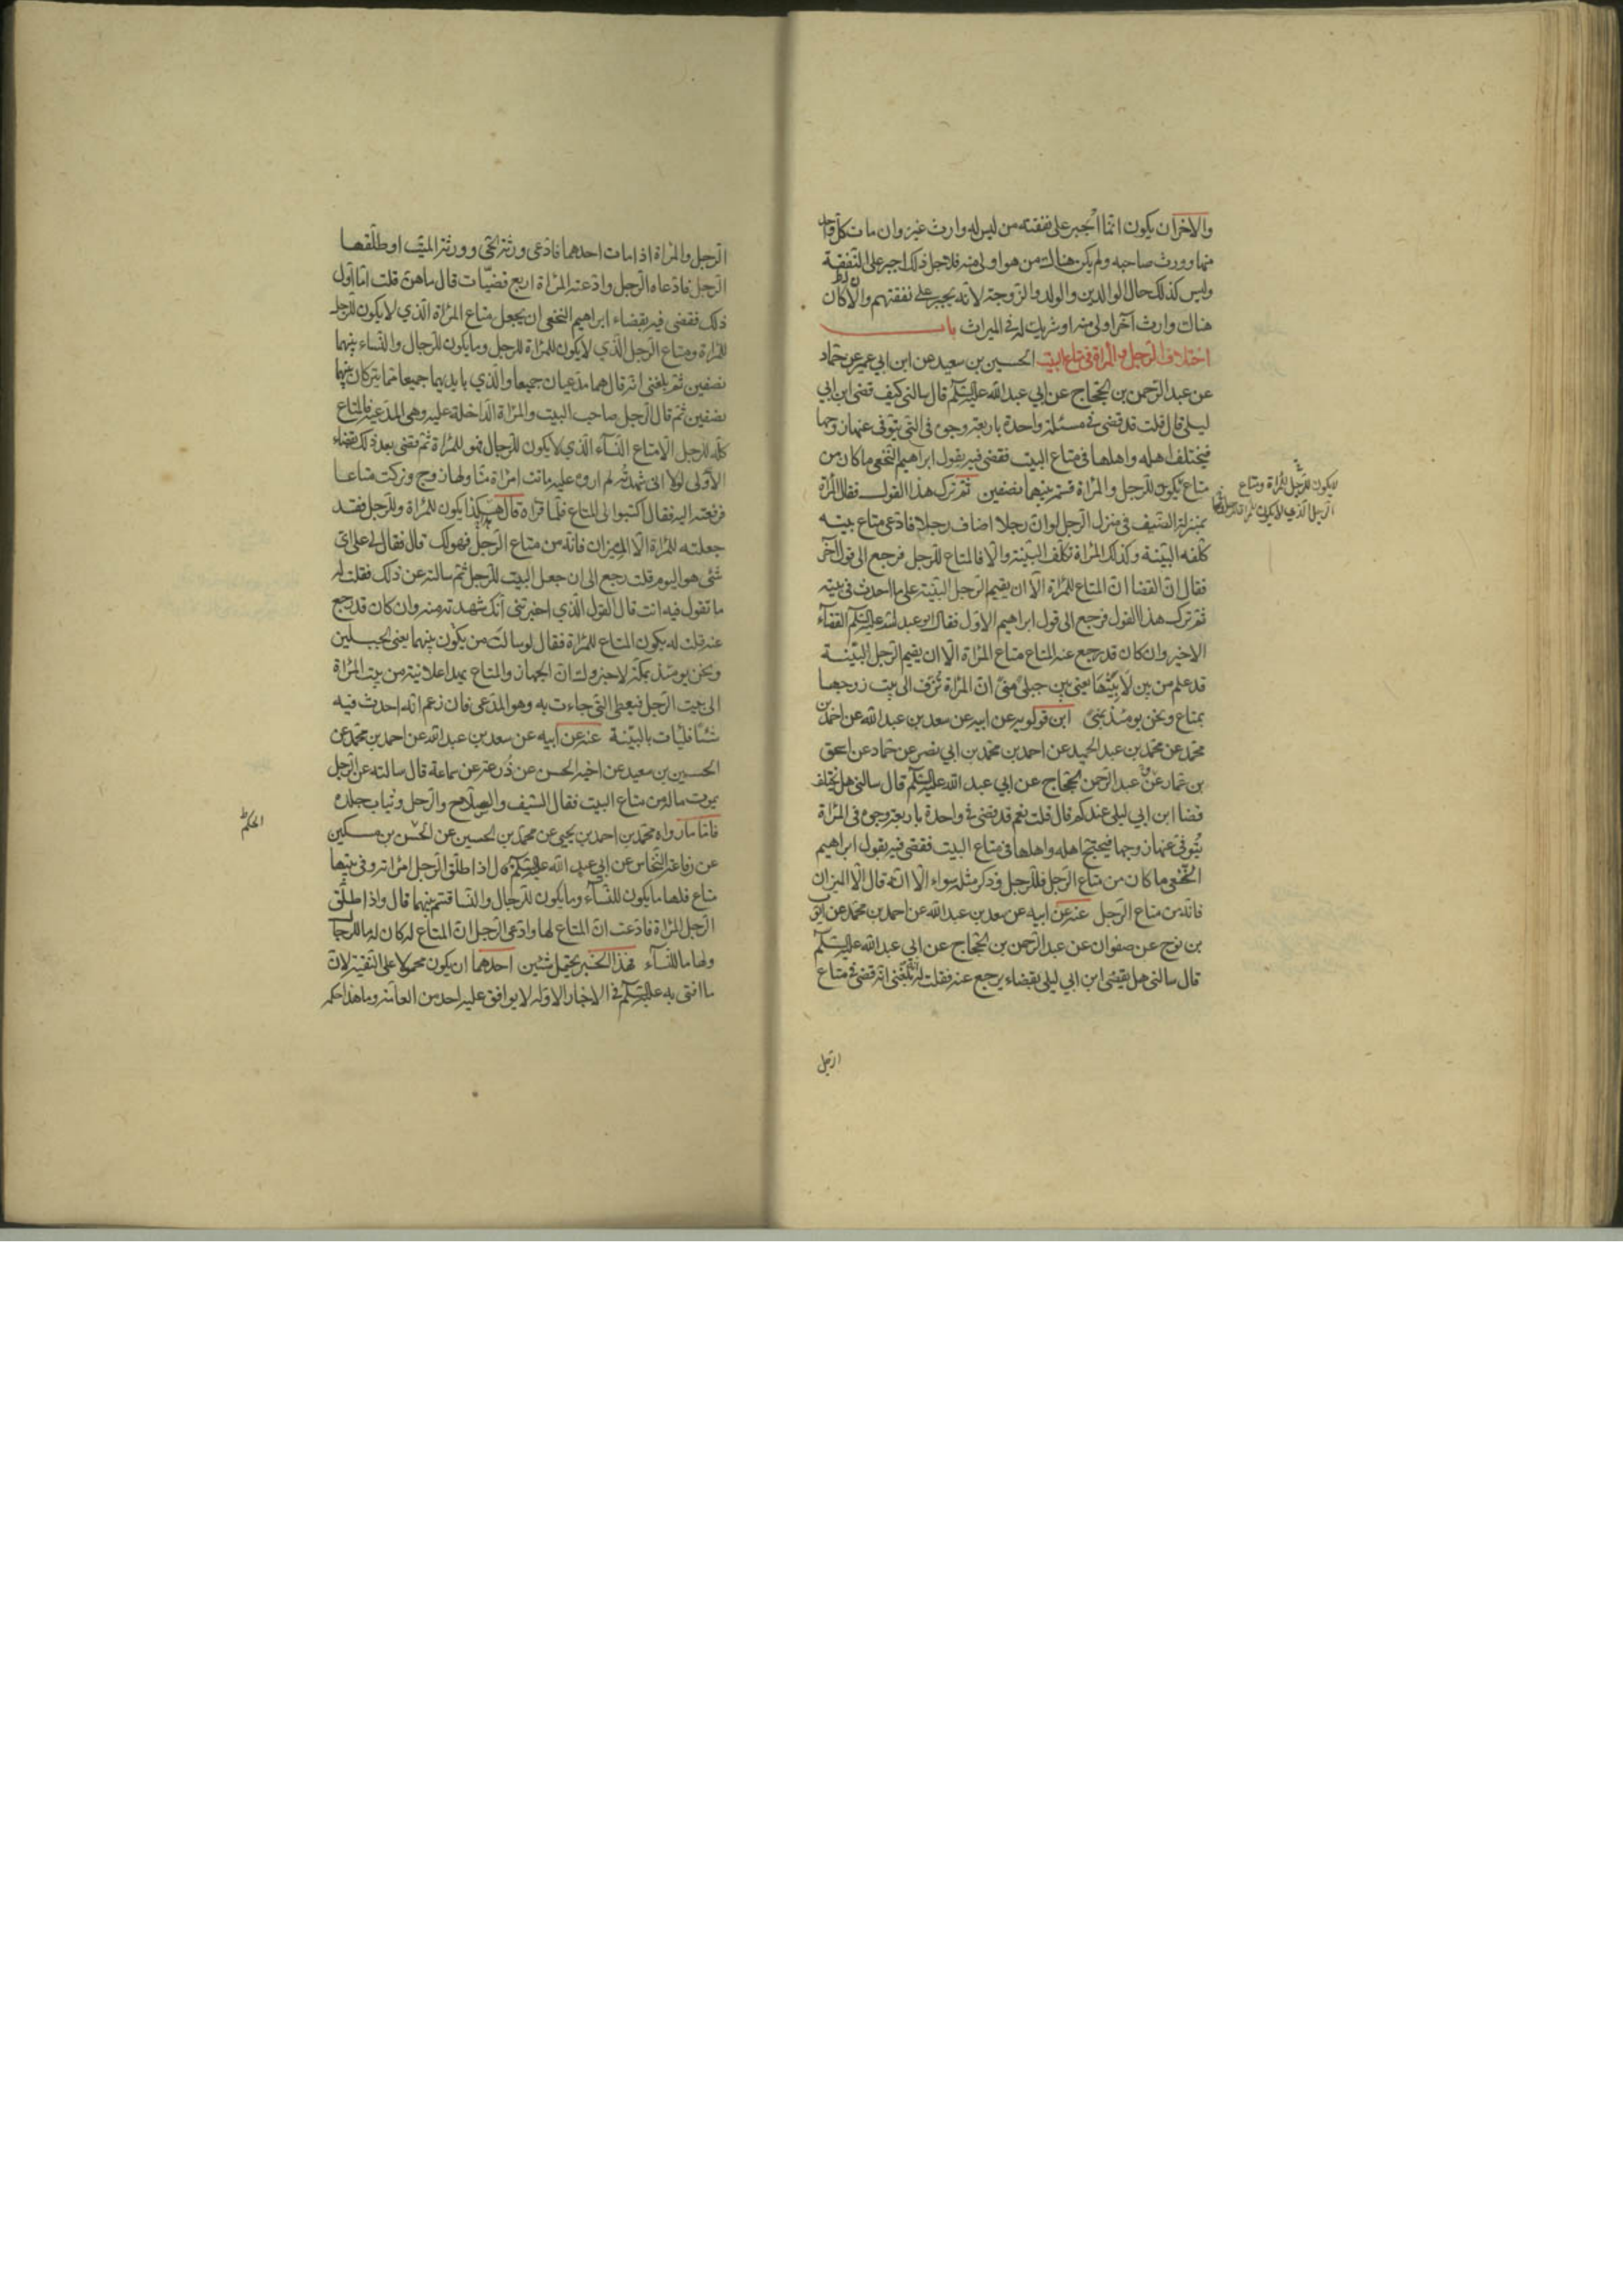 والاخر ان يكون انما اُجبر على نفقته من ليس له وارث غيره وان مات كل واحد
منهما وورث صاحبه ولم يكن هناك من هو اولى منه فلاجل ذلك اجبر على النفقة
وليس كذلك حال الوالدين والولد والزوجة لانه يجبر على نفقتهم وان كان
هناك وارث آخر اولى منه او شريك له في الميراث باب
اختلاف الرجل والمرأة في متاع البيت الحسين بن سعيد عن ابن ابي عمير عن حماد
عن عبد الرحمن بن الحجاج عن ابي عبد الله عليه السلام قال سالني كيف قضى ابن ابي
ليلى قال قلت قد قضى في مسئلة واحدة باربعة وجوه في التي يتوفى عنها زوجها
فيختلف اهله واهلها في متاع البيت فقضى فيه بقول ابراهيم النخعي ما كان من
متاع يكون للرجل والمرأة قسم بينهما نصفين ثم ترك هذا القول فقال المرأة
يكون للرجل للمرأة ومتاع
الرجل الذي لا يكون للمرأة للرجل
بمنزلة الضيف في منزل الرجل لو ان رجلا اضاف رجلا فادعى متاع بيته
كلفه البينة وكذلك المرأة تكلف البينة والا فالمتاع للرجل فرجع الى قول آخر
فقال ان القضا ان المتاع للمرأة الا ان يقيم الرجل البينة على ما احدث في بيته
ثم ترك هذا القول فرجع الى قول ابراهيم الاول فقال ابو عبد الله عليه السلام القضاء
الاخير وان كان قد رجع عنه المتاع متاع المرأة الا ان يقيم الرجل البينة
قد علم من بين لابتيها يعني بين جبلي منى ان المرأة تُزف الى بيت زوجها
بمتاع ونحن يومئذ بمنى ابن قولويه عن ابيه عن سعد بن عبد الله عن احمد بن
محمد عن محمد بن عبد الحميد عن احمد بن محمد بن ابي نصر عن حماد عن اسحق
بن عمار عن عبد الرحمن الحجاج عن ابي عبد الله عليه السلام قال سالني هل يختلف
قضا ابن ابي ليلى عندكم قال قلت نعم قد قضى في واحدة باربعة وجوه في المرأة
يُتوفى عنها زوجها فيحتج اهله واهلها في متاع البيت فقضى فيه بقول ابراهيم
النخعي ما كان من متاع الرجل فللرجل وذكر مثله سواء الا انه قال الا الميزان
فانه من متاع الرجل عنه عن ابيه عن سعد بن عبد الله عن احمد بن محمد عن ايوب
بن نوح عن صفوان عن عبد الرحمن بن الحجاج عن ابي عبد الله عليه السلام
قال سالني هل يقضي ابن ابي ليلى بقضاء يرجع عنه فقلت له بلغني انه قضى في متاع
الرجل
الرجل والمرأة اذا مات احدهما فادعى ورثة الحي وورثة الميت او طلقها
الرجل فادعاه الرجل وادعته المرأة اربع قضيات قال ما هن قلت اما اول
ذلك فقضى فيه بقضاء ابراهيم النخعي ان يجعل متاع المرأة الذي لا يكون للرجل
للمرأة ومتاع الرجل الذي لا يكون للمرأة للرجل وما يكون للرجال والنساء بينهما
نصفين ثم بلغني انه قال هما مدعيان جميعا والذي بايديهما جميعا مما يتركان بينهما
نصفين ثم قال الرجل صاحب البيت والمرأة الداخلة عليه وهي المدعية فالمتاع
كله للرجل الا متاع النساء الذي لا يكون للرجال فهو للمرأة ثم قضى بعد ذلك بقضاء
الاولى لولا اني شهدته لم اروه عليه ماتت امرأة منا ولها زوج وتركت متاعا
فرفعته اليه فقال اكتبوا لي المتاع فلما قرأه قال هكذا يكون للمرأة وللرجل فقد
جعلته للمرأة الا الميزان فانه من متاع الرجل فهو لك قال فقال لي على اي
شئ هو اليوم قلت رجع الى ان جعل البيت للرجل ثم سالته عن ذلك فقلت له
ما تقول فيه انت قال القول الذي اخبرتني انك شهدته منه وان كان قد رجع
عنه قلت له يكون المتاع للمرأة فقال لو سالت من يكون بينهما يعني الجبلين
ونحن يومئذ بمكة لاخبروك ان الجهاز والمتاع يهدا علانية من بيت المرأة
الى بيت الرجل فيعطى التي جاءت به وهو المدعي فان زعم انه احدث فيه
شئا فليات بالبينة عنه عن ابيه عن سعد بن عبد الله عن احمد بن محمد عن
الحسين بن سعيد عن اخيه الحسن عن زرعة عن سماعة قال سالته عن الرجل
يموت ماله من متاع البيت فقال السيف والسلاح والرحل وثياب جلده
فاما ما رواه محمد بن احمد بن يحيى عن محمد بن الحسين عن الحسن بن مسكين
عن رفاعة النخاس عن ابي عبد الله عليه السلام قال اذا طلق الرجل امرأته وفي بيتها
متاع فلها ما يكون للنساء وما يكون للرجال والنسا قسم بينهما قال واذا طلق
الرجل المرأة فادعت ان المتاع لها وادعى الرجل ان المتاع له كان له ما للرجال
ولها ما للنساء فهذا الخبر يحتمل شئين احدهما ان يكون محمولا على التقية لان
ما افتى به عليه السلام في الاخبار الاوله لا يوافق عليه احد من العامة وما هذا حكمه